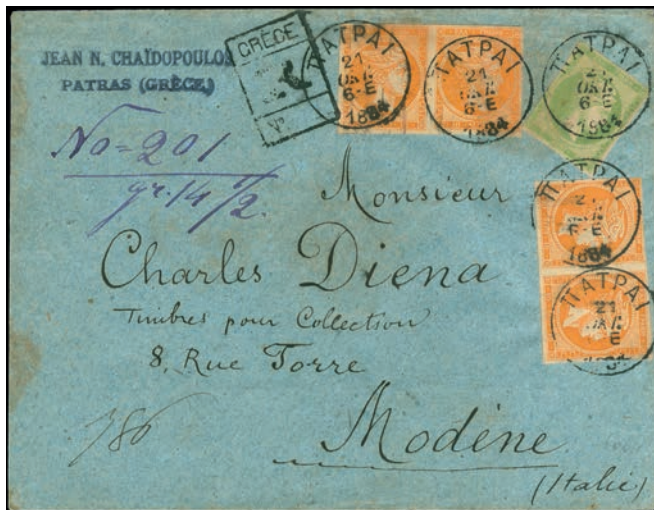 JEAN N. CHAÏDOPOULOS
PATRAS (GRÈCE)
GRÈCE
ΠΑΤΡΑΙ
21
ΟΚΤ.
6-Ε
1884
ΠΑΤΡΑΙ
21
ΟΚΤ.
6-Ε
1884
ΠΑΤΡΑΙ
21
ΟΚΤ.
6-Ε
1884
No=201
gr. 14 1/2.
ΠΑΤΡΑΙ
21
ΟΚΤ.
6-Ε
1884
ΠΑΤΡΑΙ
21
ΟΚΤ.
Ε
1884
Monsieur
Charles Diena
Timbres pour Collection
8, Rue Torre
786
Modène
(Italie)